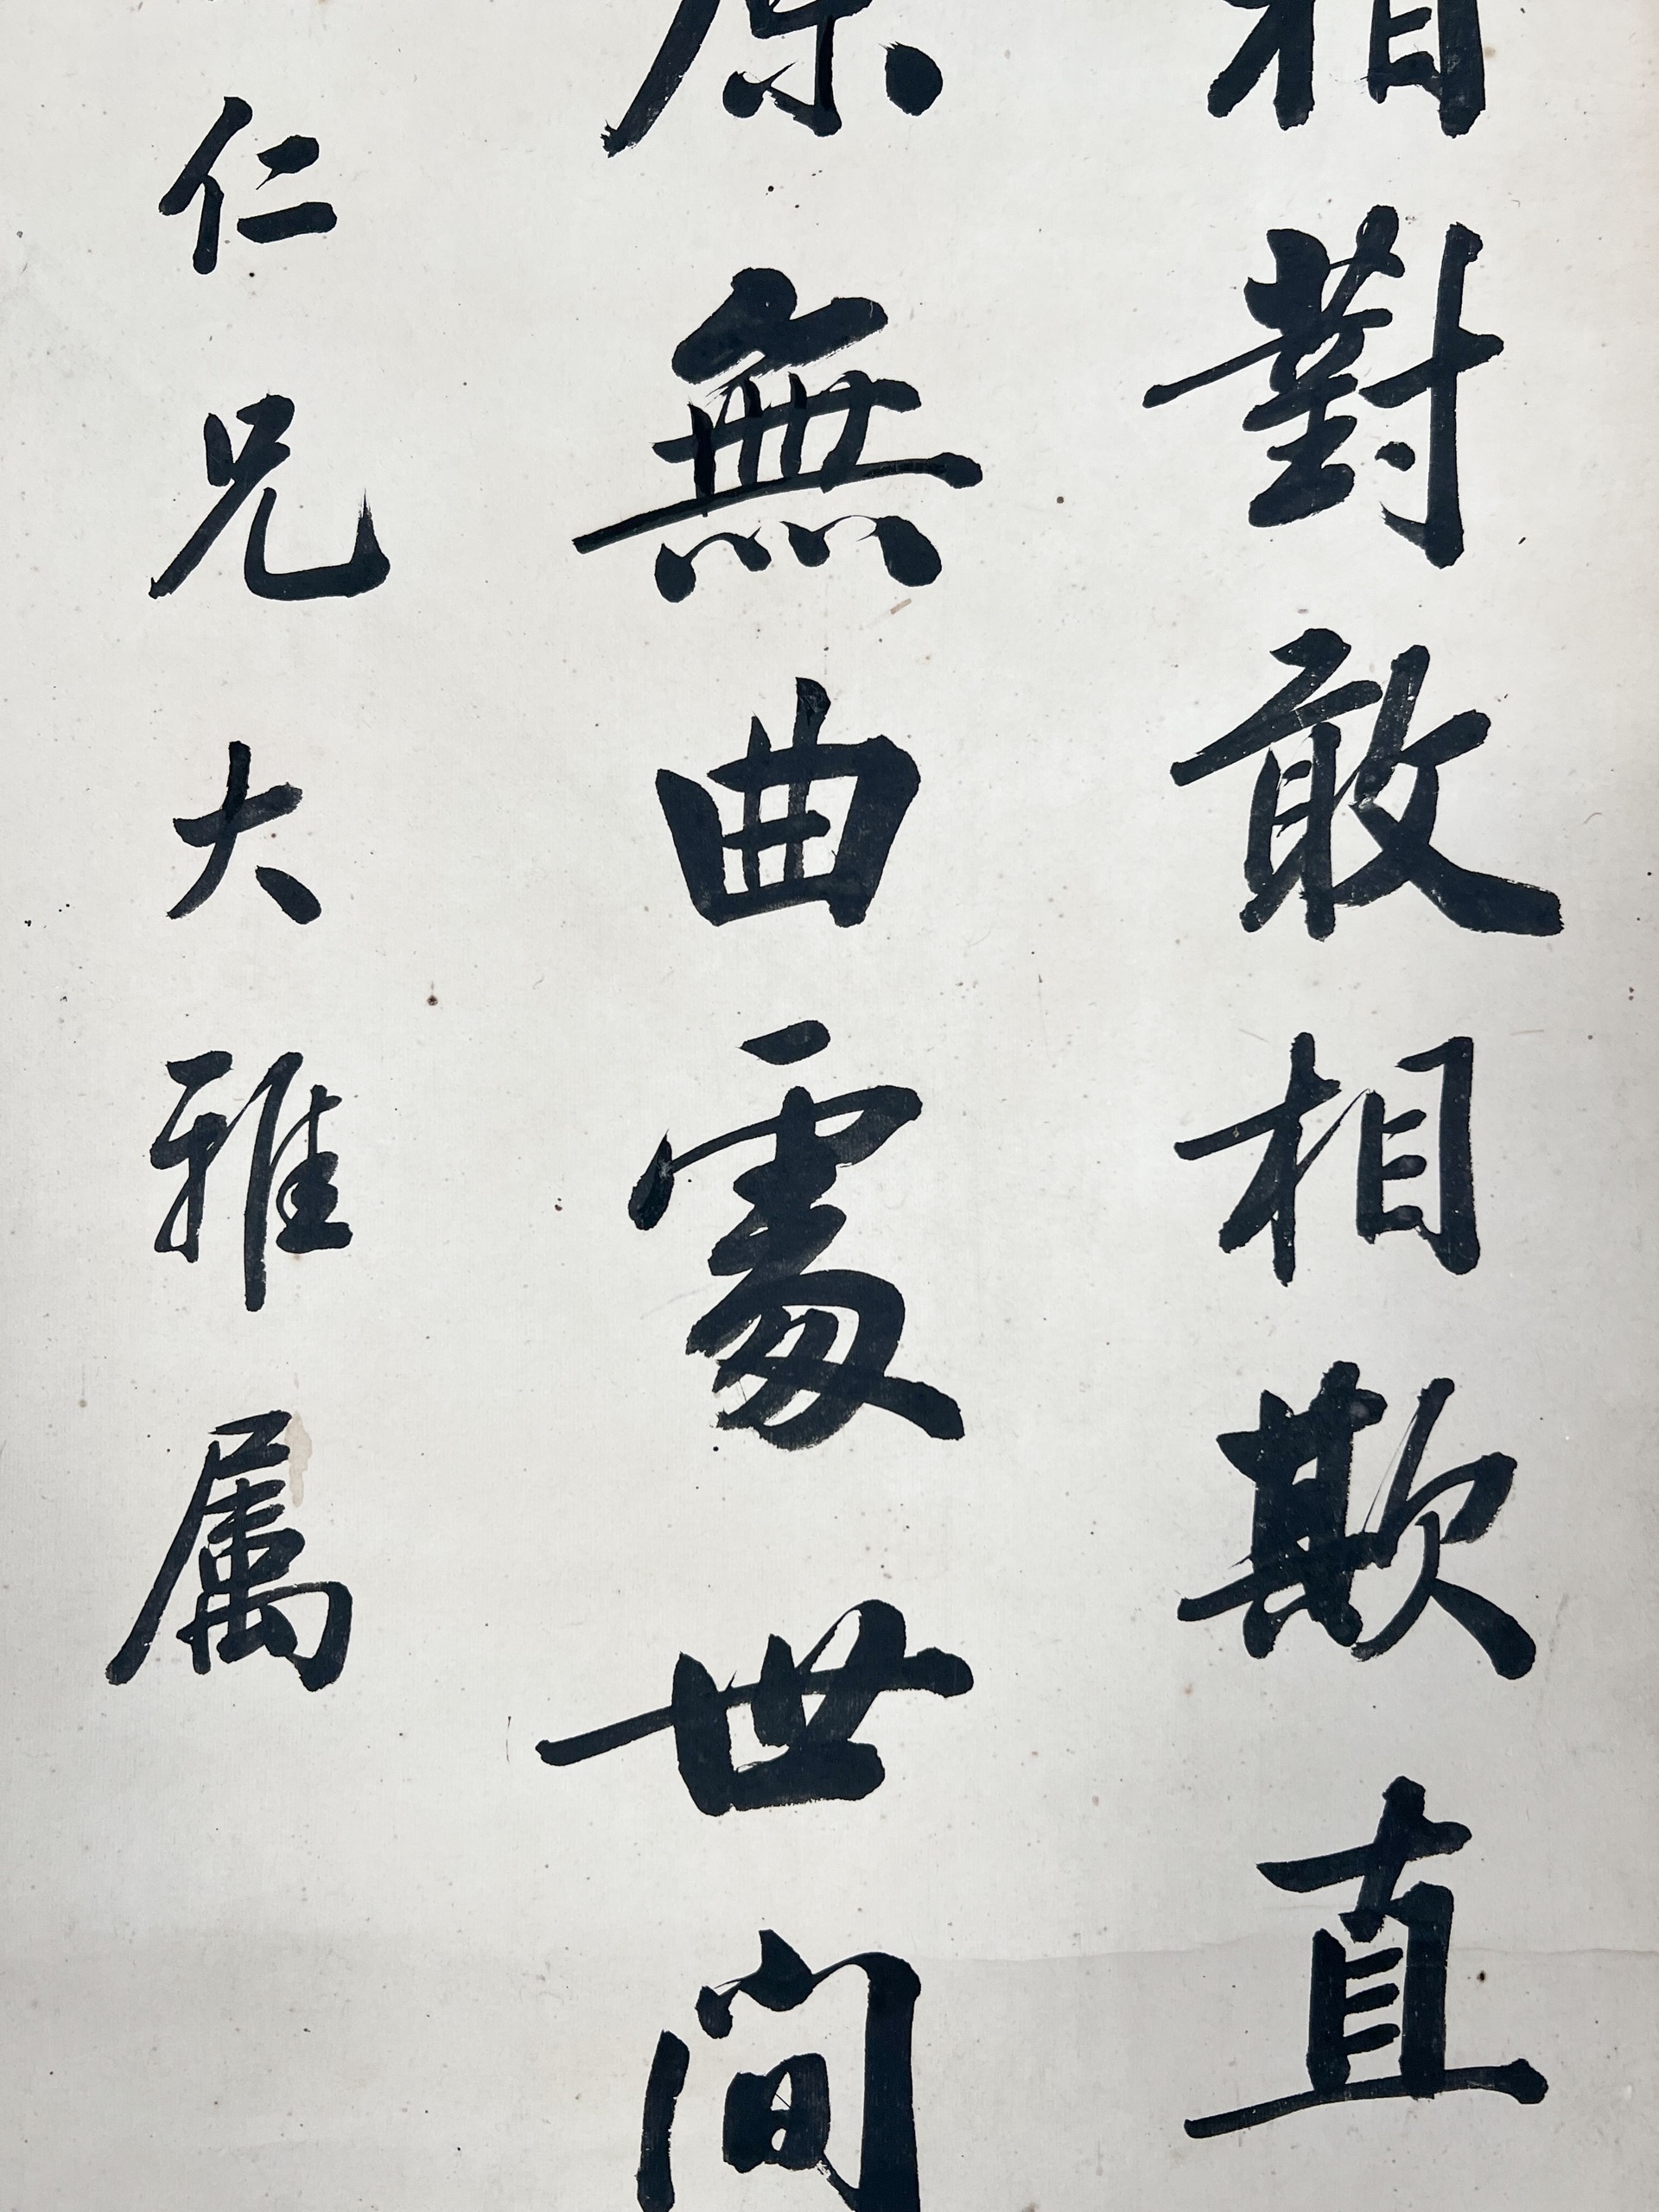 相對敢相欺直
原無曲處世間
仁兄大雅属